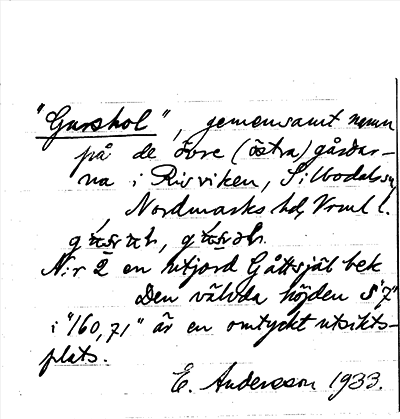 "Gurshol", gemensamt namn
på de övre (östra) gårdar-
na i Risviken, Silbodals sn,
Nordmarks hd, Vrml l.
N:r 2 en utjord Gåttsjäl bek
Den välvda höjden S "7"
i "160,71" är en omtyckt utsikts-
plats.
E. Andersson 1933.